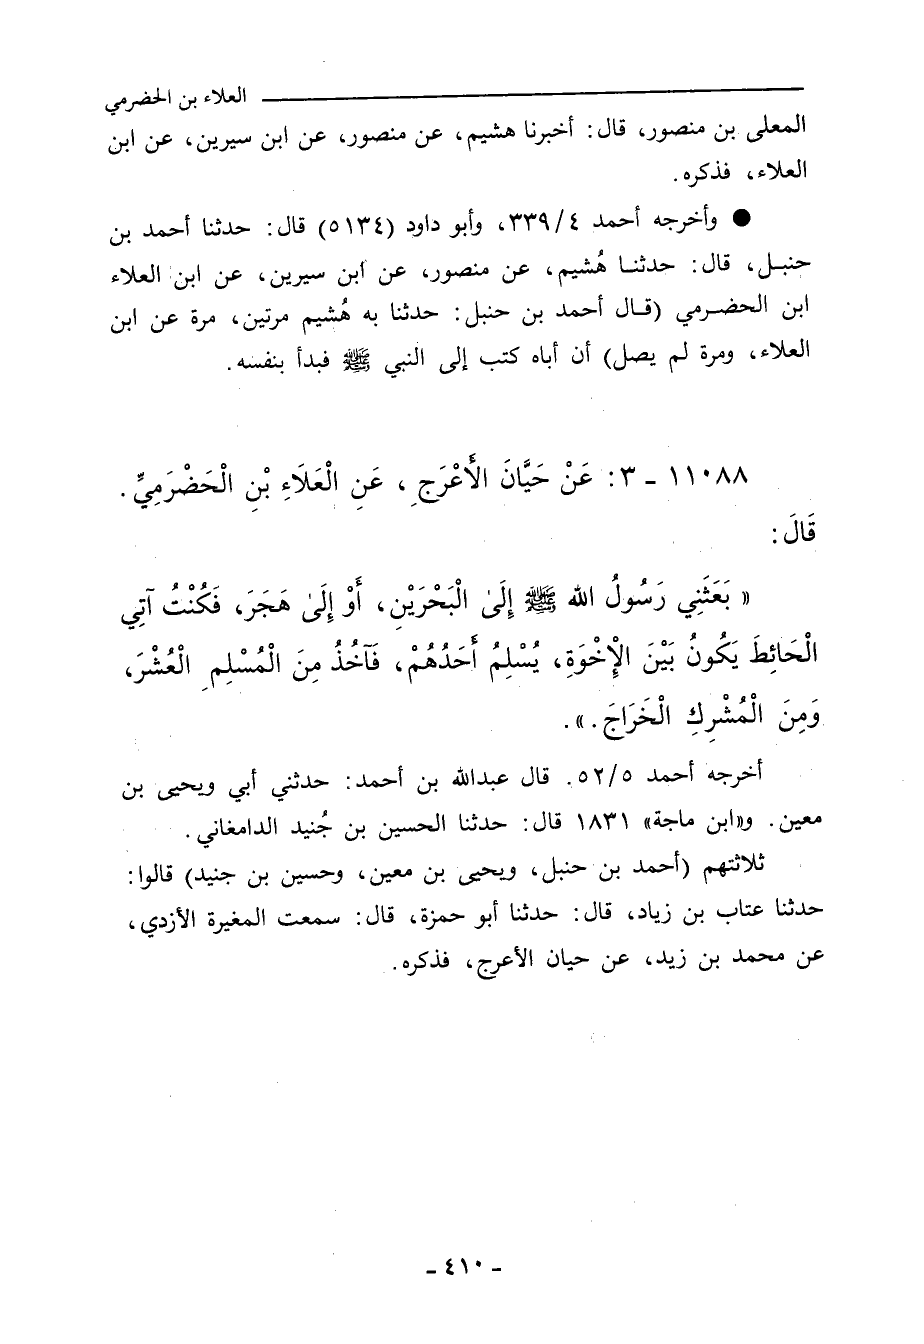 العلاء بن الحضرمي
المعلى بن منصور، قال: أخبرنا هشيم، عن منصور، عن ابن سيرين، عن ابن
العلاء، فذكره.
● وأخرجه أحمد ٣٣٩/٤، وأبو داود (٥١٣٤) قال: حدثنا أحمد بن
حنبل، قال: حدثنا هُشيم، عن منصور، عن ابن سيرين، عن ابن العلاء
ابن الحضرمي (قال أحمد بن حنبل: حدثنا به هُشيم مرتين، مرة عن ابن
العلاء، ومرة لم يصل) أن أباه كتب إلى النبي ﷺ فبدأ بنفسه.
١١٠٨٨ - ٣: عَنْ حَيَّانَ الأَعْرَجِ، عَنِ الْعَلَاءِ بْنِ الْحَضْرَمِيِّ.
قَالَ:
« بَعَثَنِي رَسُولُ الله ﷺ إِلَىٰ الْبَحْرَيْنِ، أَوْ إِلَىٰ هَجَرَ، فَكُنْتُ آتِي
الْحَائِطَ يَكُونُ بَيْنَ الإِخْوَةِ، يُسْلِمُ أَحَدُهُمْ، فَآخُذُ مِنَ الْمُسْلِمِ الْعُشْرَ،
وَمِنَ الْمُشْرِكِ الْخَرَاجَ.».
أخرجه أحمد ٥٢/٥. قال عبدالله بن أحمد: حدثني أبي ويحيى بن
معين. و«ابن ماجة» ١٨٣١ قال: حدثنا الحسين بن جُنيد الدامغاني.
ثلاثتهم (أحمد بن حنبل، ويحيى بن معين، وحسين بن جنيد) قالوا:
حدثنا عتاب بن زياد، قال: حدثنا أبو حمزة، قال: سمعت المغيرة الأزدي،
عن محمد بن زيد، عن حيان الأعرج، فذكره.
- ٤١٠ -